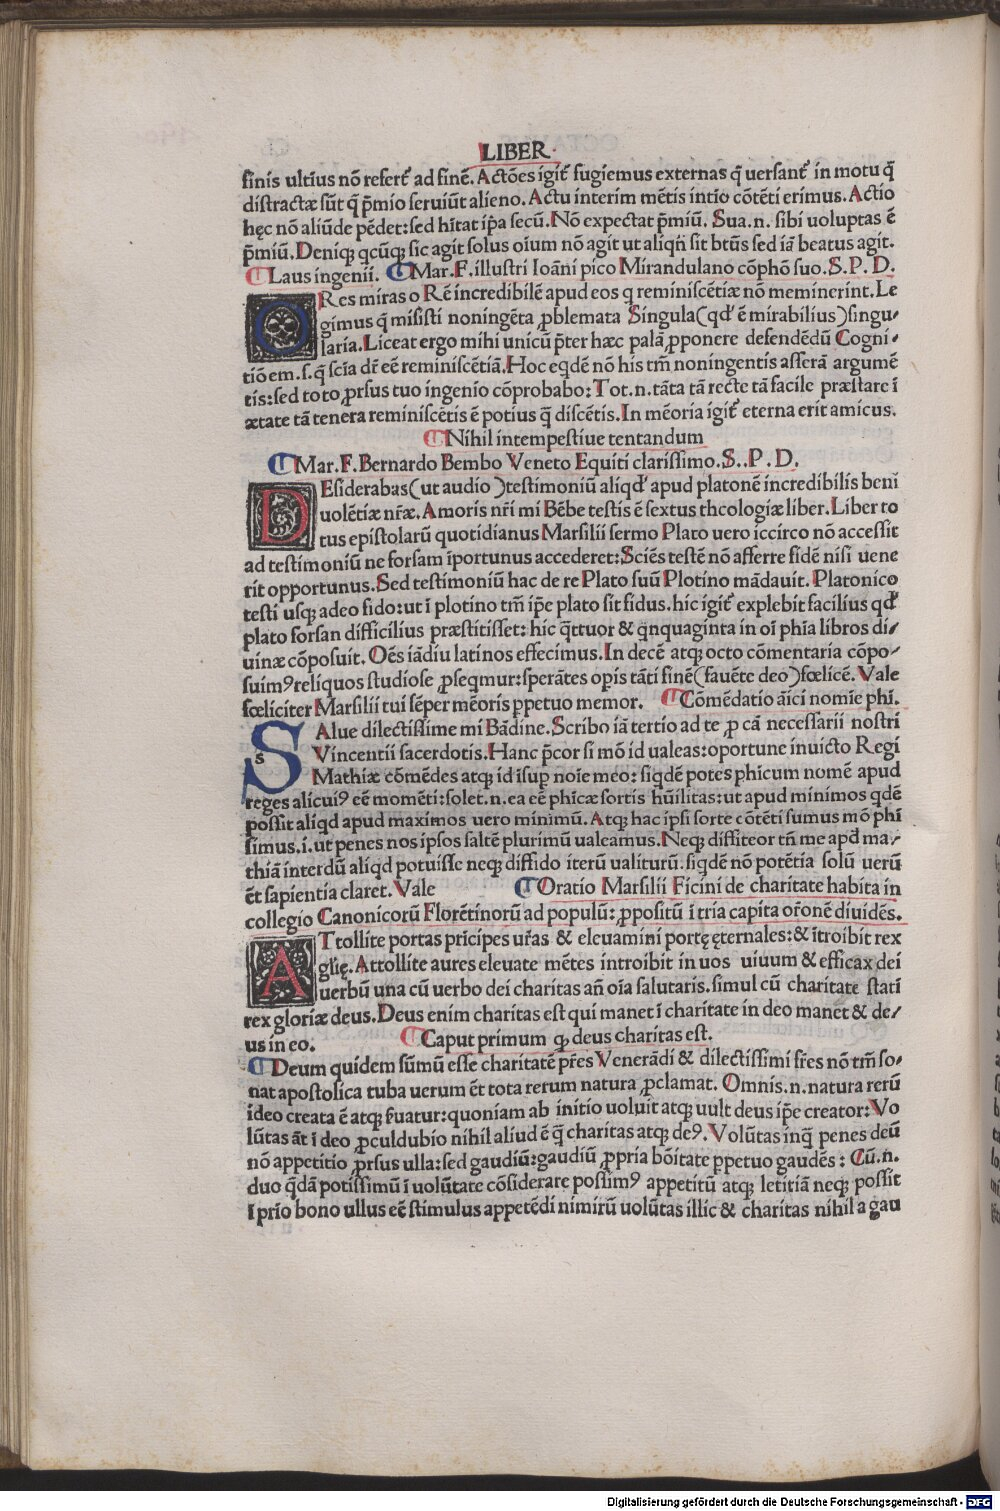 LIBER.
finis ultiꝰ nō refert̄ ad finē. Actōes igit̄ fugiemus externas q̄ versant̄ in motu q̄
distractæ sūt q̄ p̄mio serviūt alieno. Actu interim mētis intio cōtēti erimus. Actio
hęc nō aliūde pēdet: sed hītat ip̄a secū. Nō expectat p̄miū. Sua.n. sibi voluptas ē
p̄miū. Deniqꝫ qcūqꝫ sic agit solus oium nō agit ut aliqn̄ sit btūs sed iā beatus agit.
Laus ingenii. Mar. F. illustri Ioāni pico Mirandulano cōphō suo. S. P. D.
ORes miras o Rē incredibilē apud eos q reminiscētiæ nō meminerint. Le
gimus q̄ misisti noningēta ꝓblemata Singula (qđ ē mirabilius) singu⸗
laria. Liceat ergo mihi unicū p̄ter hæc palā ꝓponere defendēdū Cogni⸗
tiōem.s.q̄ scīa dr̄ eē reminiscētiā. Hoc eqdē nō his tm̄ noningentis asserā argumē
tis: sed toto ꝓrsus tuo ingenio cōprobabo: Tot.n. tāta tā recte tā facile præstare ī
ætate tā tenera reminiscētis ē potius q̄ discētis. In mēoria igit̄ eterna erit amicus.
Nihil intempestiue tentandum
Mar. F. Bernardo Bembo Veneto Equiti clarissimo. S.. P. D.
DEsiderabas (ut audio) testimoniū aliqđ apud platonē incredibilis beni
uolētiæ nr̄æ. Amoris nr̄i mi Bēbe testis ē sextus theologiæ liber. Liber to
tus epistolarū quotidianus Marsilii sermo Plato uero iccirco nō accessit
ad testimoniū ne forsam īportunus accederet: Sciēs testē nō afferre fidē nisi uene
rit opportunus. Sed testimoniū hac de re Plato suū Plotino mādauit. Platonico
testi usqꝫ adeo fido: ut ī plotino tm̄ ip̄e plato sit fidus. hic igit̄ explebit facilius qđ
plato forsan difficilius præstitisset: hic q̄ttuor & q̄nquaginta in oī phīa libros di⸗
uinæ cōposuit. Oēs iādiu latinos effecimus. In decē atqꝫ octo cōmentaria cōpo⸗
suimꝰ reliquos studiose ꝓseqmur: sperātes opis tāti finē (fauēte deo) fœlicē. Vale
fœliciter Marsilii tui sēper mēoris ꝑpetuo memor. Cōmēdatio aīci nomīe phī.
SAlue dilectissime mi Bādine. Scribo iā tertio ad te ꝓ cā necessarii nostri
Vincentii sacerdotis. Hanc p̄cor si mō id ualeas: oportune inuicto Regi
Mathiæ cōmēdes atqꝫ id isup noīe meo: siqdē potes phicum nomē apud
reges alicuiꝰ eē momēti: solet.n. ea eē phicæ sortis hūilitas: ut apud minimos qdē
possit aliqd apud maximos uero minimū. Atqꝫ hac ipsi sorte cōtēti sumus mō phī
simus.i. ut penes nos ipsos saltē plurimū ualeamus. Neqꝫ diffiteor tn̄ me apđ ma⸗
thiā interdū aliqd potuisse neqꝫ diffido iterū ualiturū. siqdē nō potētia solū uerū
ēt sapientia claret. Vale Oratio Marsilii Ficini de charitate habita in
collegio Canonicorū Florētinorū ad populū: ꝓpositū ī tria capita or̄onē diuidēs.
ATtollite portas prīcipes ur̄as & eleuamini portę ęternales: & ītroibit rex
glīę. Attollite aures eleuate mētes introibit in uos uiuum & efficax dei
uerbū una cū uerbo dei charitas añ oīa salutaris. simul cū charitate statī
rex gloriæ deus. Deus enim charitas est qui manet ī charitate in deo manet & de⸗
us in eo. Caput primum qꝫ deus charitas est.
Deum quidem sūmū esse charitatē pr̄es Venerādi & dilectissimi fr̄es nō tm̄ so⸗
nat apostolica tuba uerum ēt tota rerum natura ꝓclamat. Omnis.n. natura rerū
ideo creata ē atqꝫ ẜuatur: quoniam ab initio uoluit atqꝫ uult deus ip̄e creator: Vo
lūtas āt ī deo ꝓculdubio nihil aliud ē q̄ charitas atqꝫ deꝰ. Volūtas inq̄ penes deū
nō appetitio ꝓrsus ulla: sed gaudiū: gaudiū ꝓpria bōitate ꝑpetuo gaudēs: Cū.n.
duo q̄dā potissimū ī uolūtate cōsiderare possimꝰ appetitū atqꝫ letitiā neqꝫ possit
ī prīo bono ullus eē stimulus appetēdi nimirū uolūtas illic & charitas nihil a gau
Digitalisierung gefördert durch die Deutsche Forschungsgemeinschaft - DFG